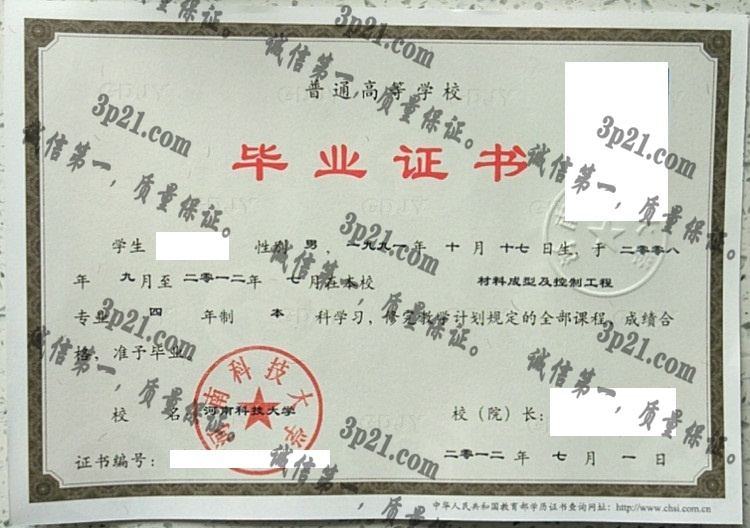 普通高等学校
毕业证书
学生 性别 男，一九九一年 十月 十七日生，于 二〇〇八
年 九月至 二〇一二年 七月在本校 材料成型及控制工程
专业 四 年制 本 科学习，修完教学计划规定的全部课程，成绩合
格，准予毕业。
校 名 河南科技大学 校（院）长：
河南科技大学
证书编号： 二〇一二年 七月 一日
中华人民共和国教育部学历证书查询网址：http://www.chsi.com.cn
3p21.com
诚信第一，质量保证。
3p21.com
诚信第一，质量保证。
3p21.com
诚信第一，质量保证。
3p21.com
诚信第一，质量保证。
3p21.com
诚信第一，质量保证。
3p21.com
诚信第一，质量保证。
3p21.com
诚信第一，质量保证。
3p21.com
诚信第一，质量保证。